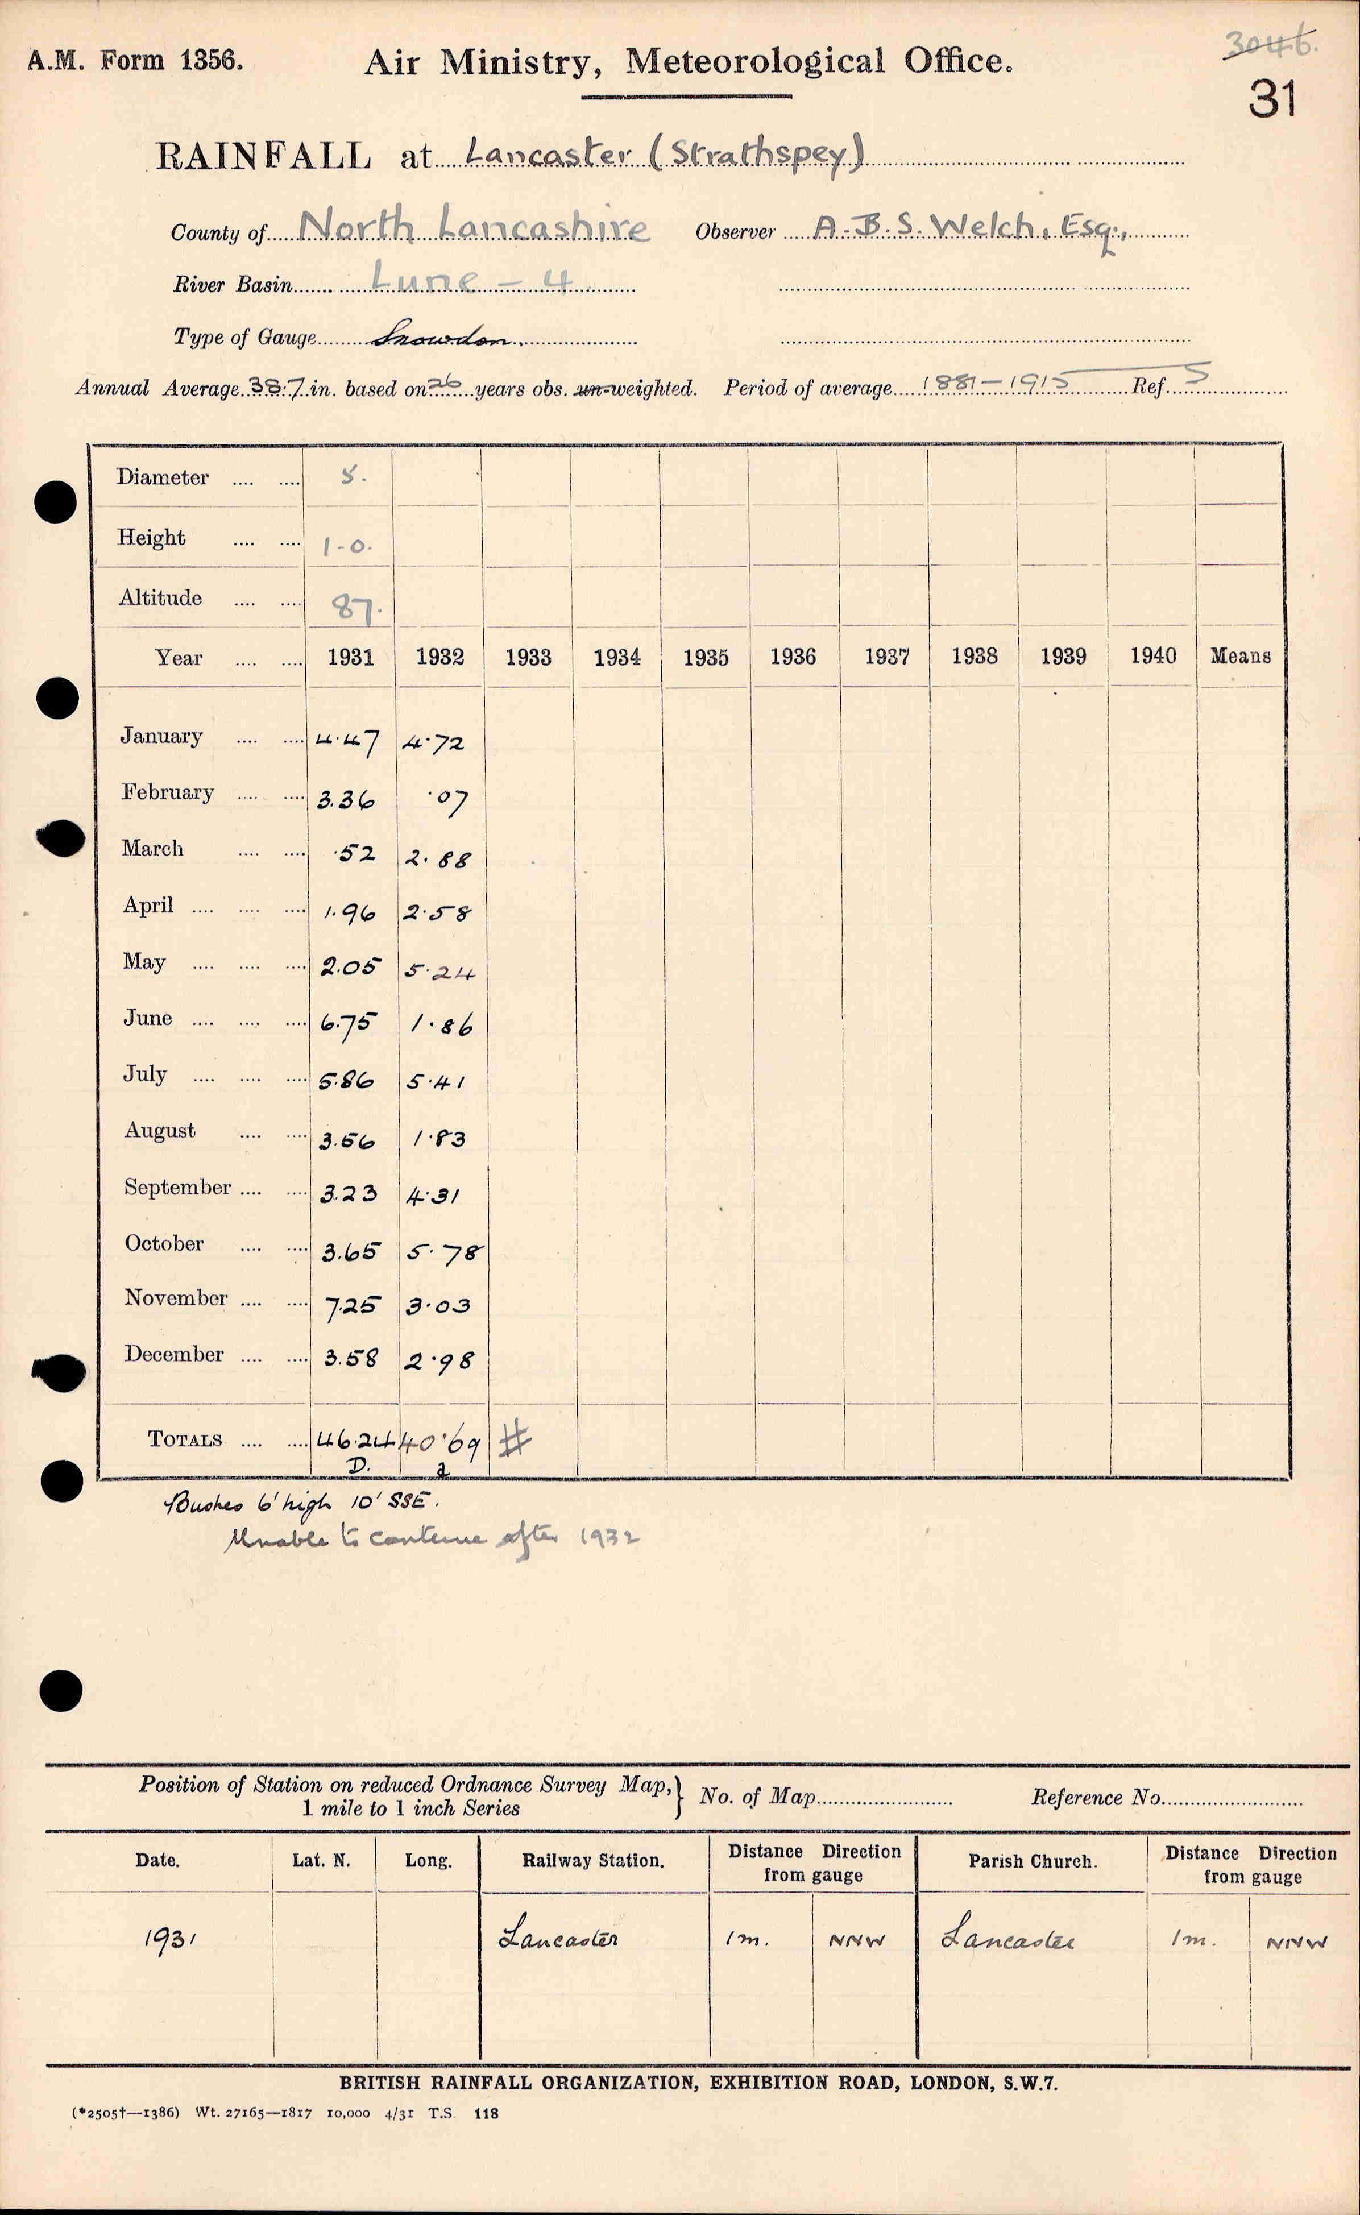 3046.
A.M. Form 1356. Air Ministry, Meteorological Office.
31
RAINFALL at Lancaster (Strathspey)
County of North Lancashire Observer A.B.S. Welch, Esq.,
River Basin Lune - 4
Type of Gauge Snowdon.
Annual Average 38.7 in. based on 26 years obs. un-weighted. Period of average 1881-1915 Ref. 5
Diameter .... .... 5.
Height .... .... 1-0.
Altitude .... .... 87.
Year .... .... 1931 1932 1933 1934 1935 1936 1937 1938 1939 1940 Means
January .... .... 4.47 4.72
February .... .... 3.36 .07
March .... .... .52 2.88
April .... .... .... 1.96 2.58
May .... .... .... 2.05 5.24
June .... .... .... 6.75 1.86
July .... .... .... 5.86 5.41
August .... .... 3.56 1.83
September .... .... 3.23 4.31
October .... .... 3.65 5.78
November .... .... 7.25 3.03
December .... .... 3.58 2.98
TOTALS .... .... 46.24 40.69 #
D. a
Bushes 6' high 10' SSE.
Unable to continue after 1932
Position of Station on reduced Ordnance Survey Map,} No. of Map Reference No.
1 mile to 1 inch Series
Date. Lat. N. Long. Railway Station. Distance Direction from gauge Parish Church. Distance Direction from gauge
1931 Lancaster 1m. NNW Lancaster 1m. NNW
BRITISH RAINFALL ORGANIZATION, EXHIBITION ROAD, LONDON, S.W.7.
(*2505†—1386) Wt. 27165—1817 10,000 4/31 T.S. 118